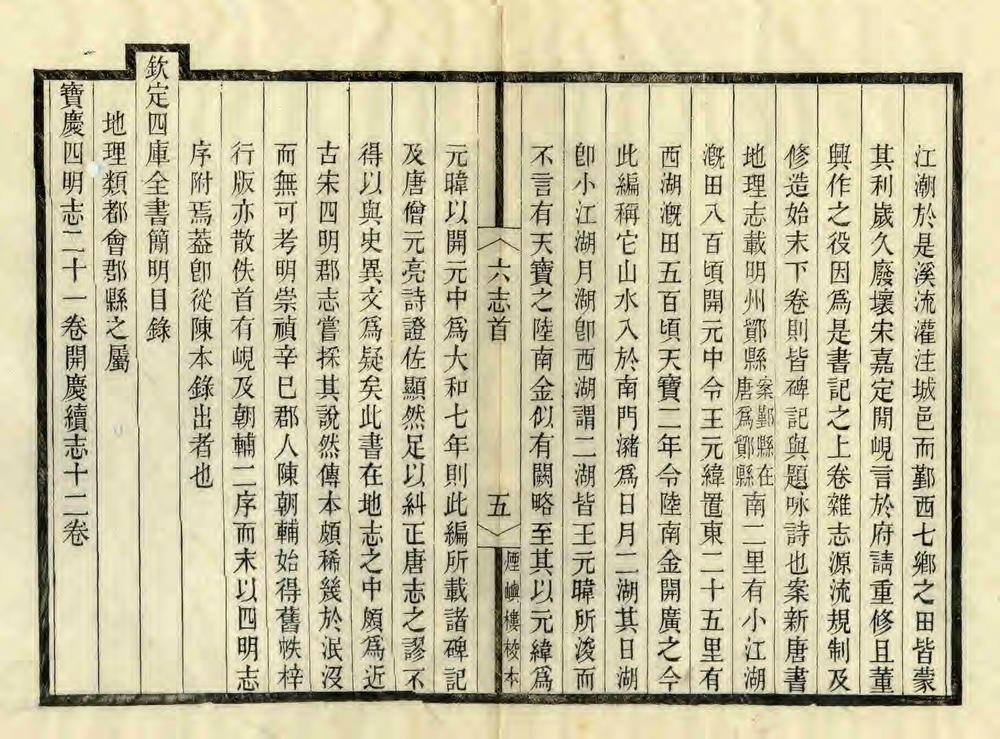 江潮於是溪流灌注城邑而鄞西七鄉之田皆蒙
其利歲久廢壞宋嘉定閒峴言於府請重修且董
興作之役因爲是書記之上卷雜志源流規制及
修造始末下卷則皆碑記與題咏詩也案新唐書
地理志載明州鄮縣案鄞縣在唐爲鄮縣南二里有小江湖
漑田八百頃開元中令王元緯置東二十五里有
西湖漑田五百頃天寶二年令陸南金開廣之今
此編稱它山水入於南門瀦爲日月二湖其日湖
卽小江湖月湖卽西湖謂二湖皆王元暐所浚而
不言有天寶之陸南金似有闕略至其以元緯爲
六志首
五
煙嶼樓校本
元暐以開元中爲大和七年則此編所載諸碑記
及唐僧元亮詩證佐顯然足以糾正唐志之謬不
得以與史異文爲疑矣此書在地志之中頗爲近
古宋四明郡志嘗採其說然傳本頗稀幾於泯沒
而無可考明崇禎辛巳郡人陳朝輔始得舊帙梓
行版亦散佚首有峴及朝輔二序而末以四明志
序附焉蓋卽從陳本錄出者也
欽定四庫全書簡明目錄
地理類都會郡縣之屬
寶慶四明志二十一卷開慶續志十二卷